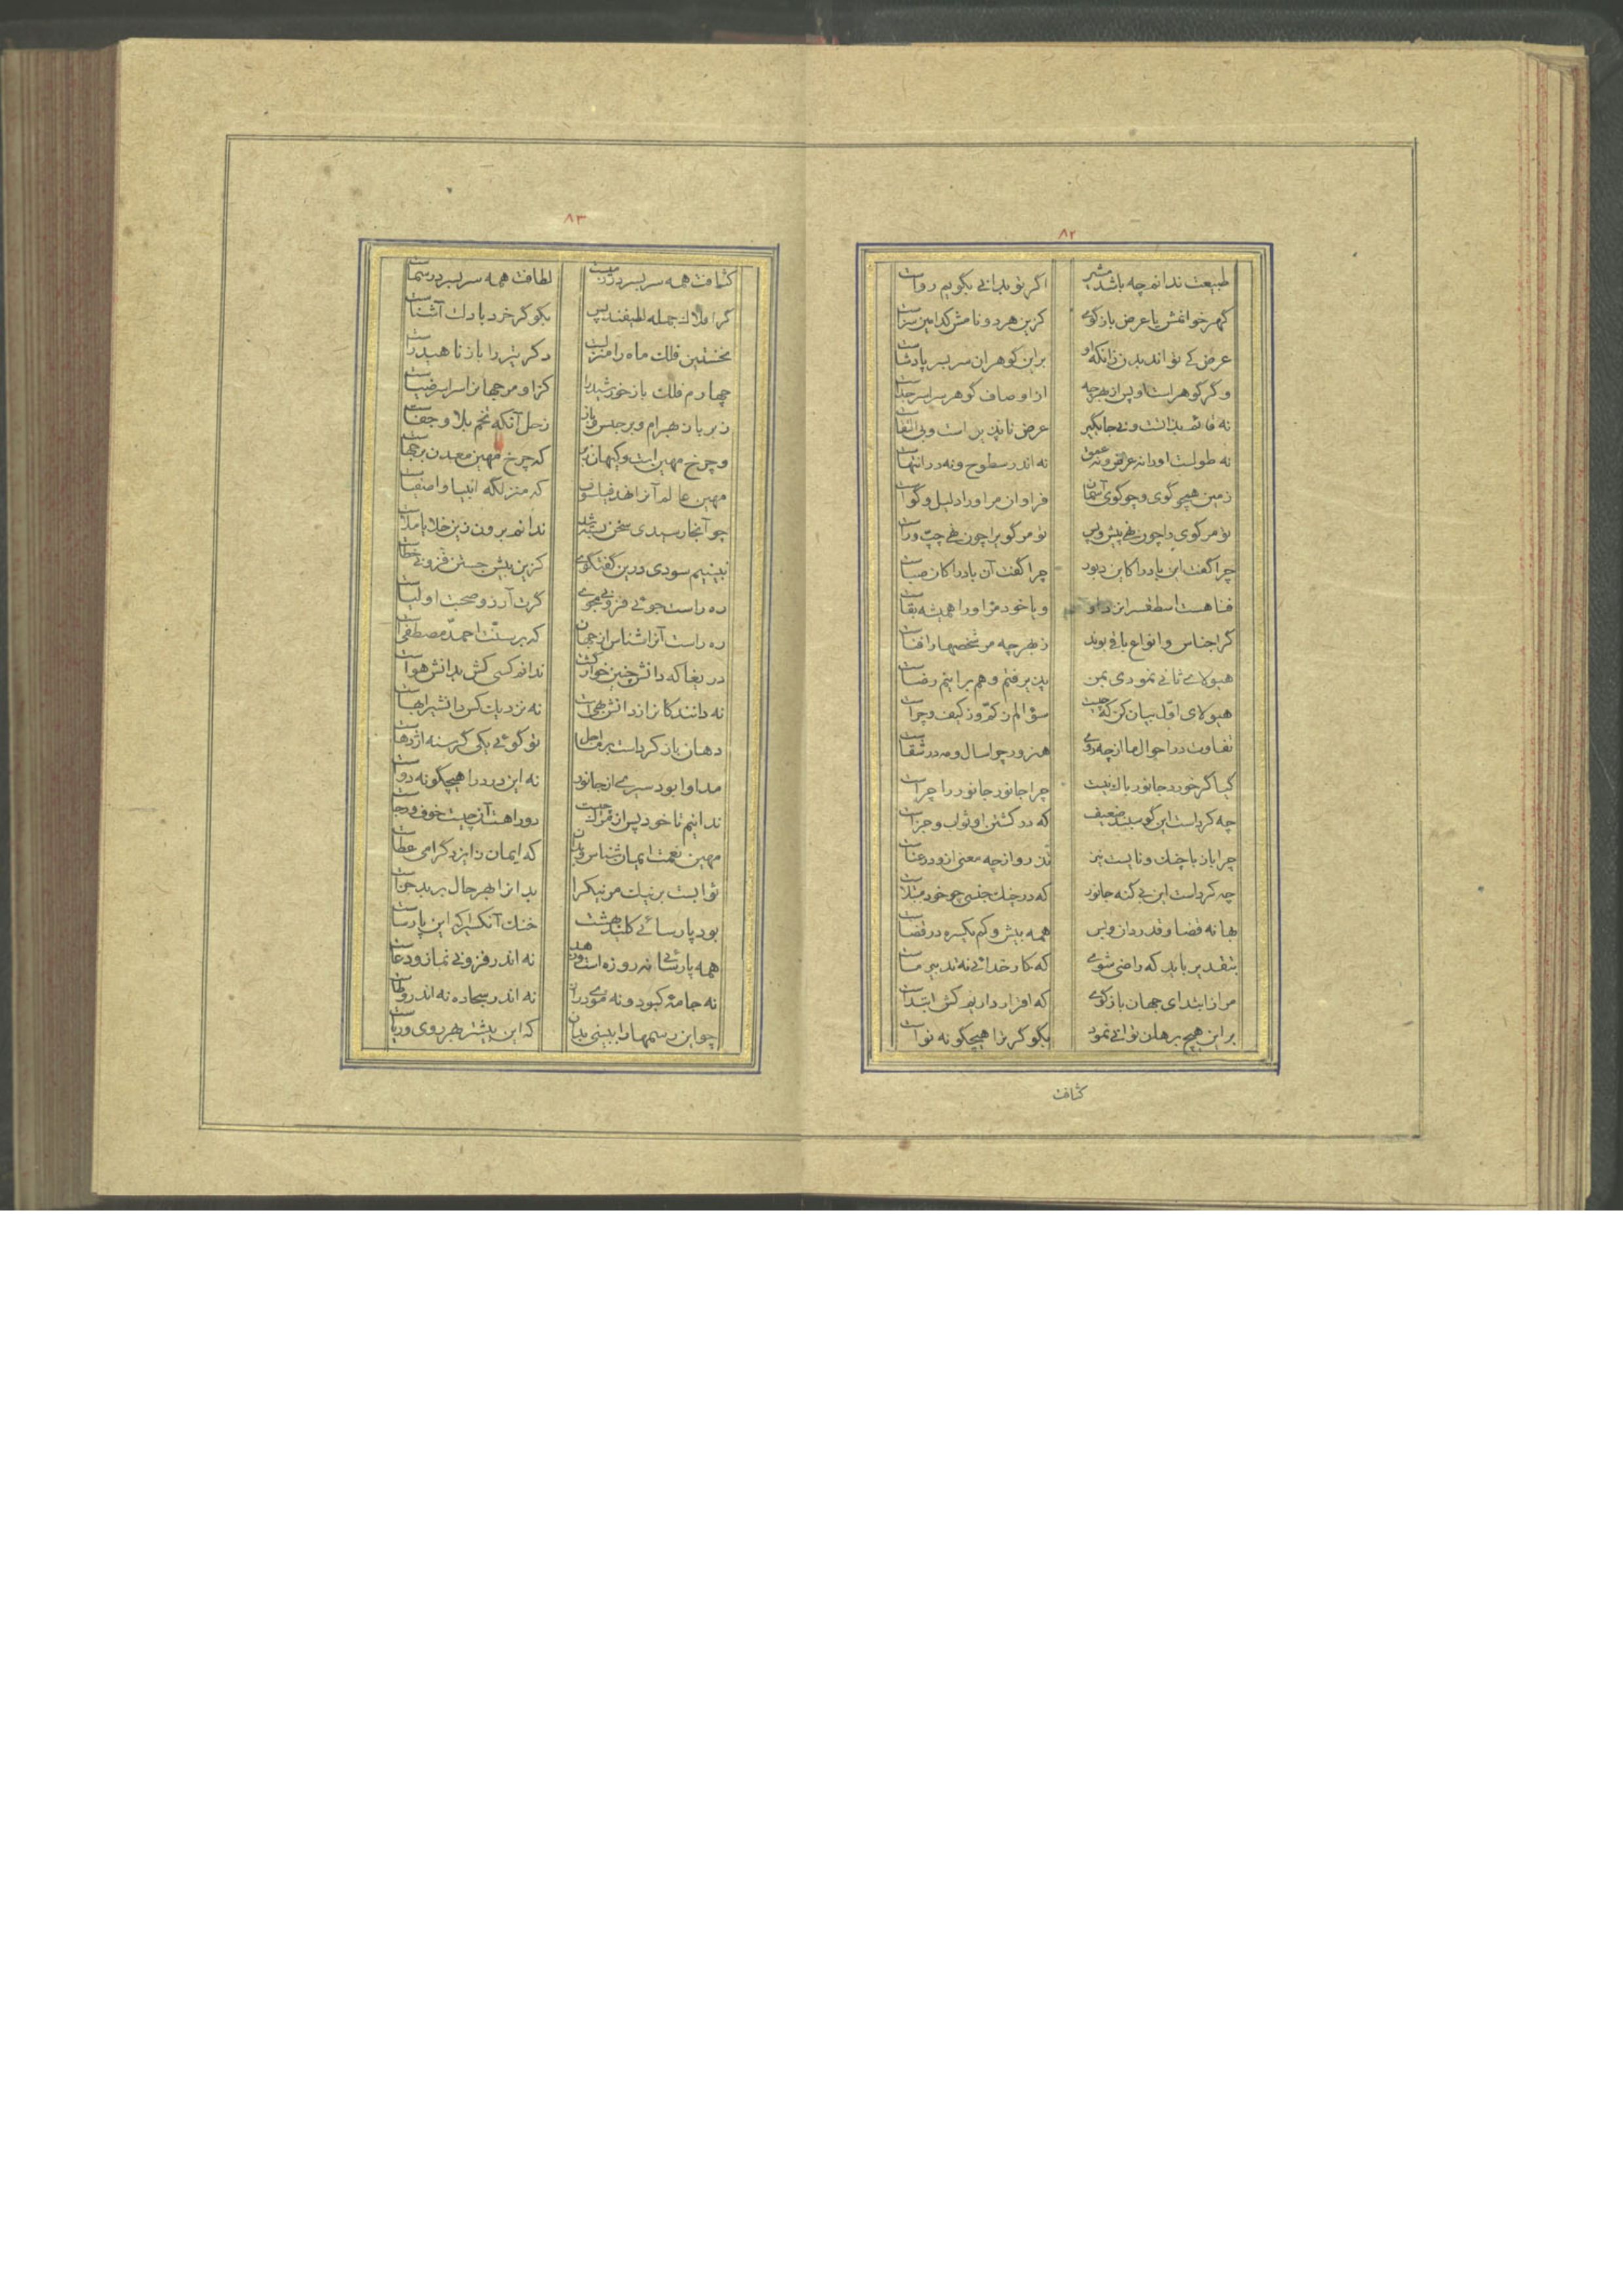 ۸۲
طبیعت ندانم چه باشد اگر تو بدانی بگویم رواست
گهر خوانمش یا عرض بازگوی کزین هر دو نامش کدامین سزاست
عرض کی تواند بدن زانکه او برین گوهران سربسر پادشاست
وگر گوهر است او پس از بهر چه از اوصاف گوهر سراسر جداست
عرض ناپذیر است و بی
نه طولست او را نه عرض و نه عمق نه اندر سطوح و نه در انتهاست
زمین همچو گوی و چو گوی آسمان فراوان مر او را دلیل و گواست
تو مر گوی را چون نهی پیش و پس تو مر گوی را چون نهی چپ و راست
چرا گفت این باد را کاین دبور چرا گفت آن باد را کان صباست
فنا هست و یا خود مر او را همیشه بقاست
گر اجناس و انواع باقی بوند ز بهر چه مر شخصها را فناست
هیولای ثانی نمودی بمن پذیرفتم و هم براینم رضاست
هیولای اول بیان کن که چیست سؤالم ز کم و ز کیف و چراست
تفاوت در احوال ما از چه روی هنرور چو اسال ومه در شقاست
گیا گر خورد جانور باک نیست چرا جانور جانور را چراست
چه کرداست این گوسپند ضعیف که در کشتن او ثواب و جزاست
چرا باز با چنک و نابست تیز تذرو از چه معنی ازو در عناست
چه کرداست این بی گنه جانور که در چنک جنسی چو خود مبتلاست
بهانه قضا و قدر دان و بس همه بیش و کم یکسره در قضاست
بتقدیر باید که راضی شوی که کار خدائی نه تدبیر ماست
مرا ز ابتدای جهان بازگوی که اقرار داریم کش ابتداست
براین هیچ برهان توانی نمود بگو گر ترا هیچگونه تواست
کثافت
۸۳
کثافت همه سربسر در زمیست لطافت همه سربسر در سماست
گر افلاک جمله لطیفند پس بگو گر خرد با دلت آشناست
نخستین فلک ماه را منزلست دگر تیر را باز ناهید راست
چهارم فلک باز خورشید را کزاو مر جهانرا سراسر ضیاست
زبر باز بهرام و برجیس باز زحل آنکه تخم بلا و جفاست
که چرخ مهین معدن
مهین عالم آنرا نهد فیلسوف که منزلگه انبیا و اصفیاست
چو آنجا رسیدی سخن بسته شد ندانم برون زین خلا یا ملاست
نبینیم سودی درین گفتگوی کزین بیش جستن فزونی خطاست
ره راست جوئی فزونی مجوی گرت آرزو صحبت اولیاست
ره راست آنرا شناس از جهان که بر سنت احمد مصطفی است
دریغا که دانش چنین خوار گشت ندانم کسی کش بدانش هواست
نه دانند کانرا ز دانش بهی است نه نزدیک کس دانشیرا بهاست
دهان باز کرداست اجل تو گوئی یکی گرسنه اژدهاست
مداوا بود سیری از جانور نه این درد را هیچگونه دواست
ندانیم تا خود پس از مرگ چیست دو راهست آن چیست خوف و رجاست
مهین نعمت ایمان شناس که ایمان ز ایزد گرامی عطاست
ثوابست بر نیک مر نیک را بد انرا بهر حال بر بد جزاست
بود پارسائی کلید بهشت خنک آنکسیرا که این پارساست
نه اندر فزونی نماز و دعاست
نه جامه کبود و نه موی دراز نه اندر سجاده نه اندر وطاست
چو این رسمها را ببینی بدان که این بیشتر بهر روی و ریاست